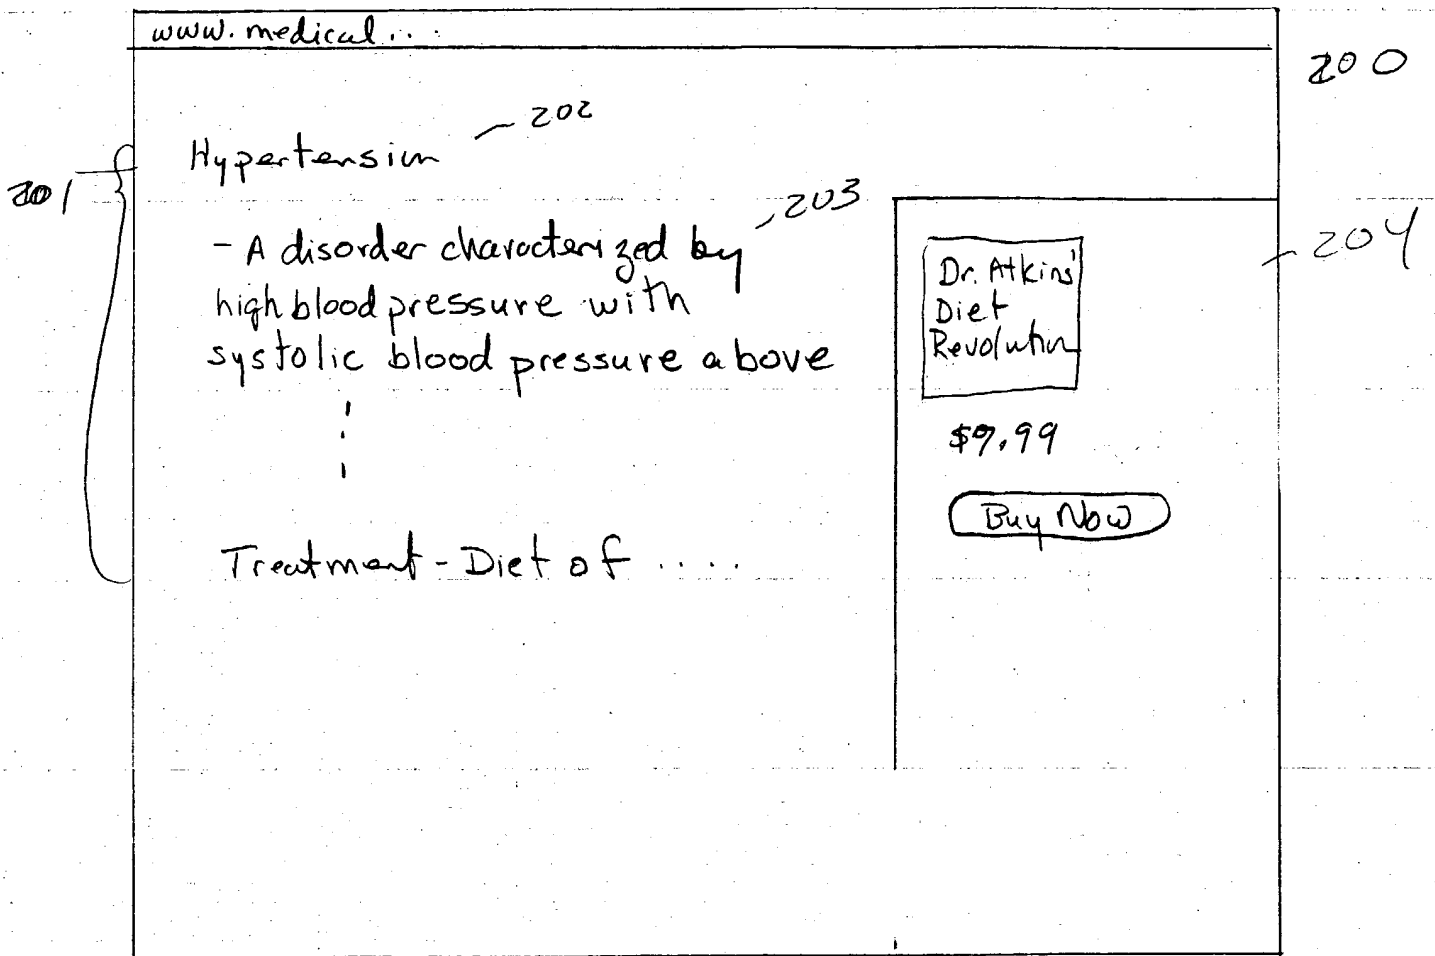 www.medical...
200
Hypertension
202
201
- A disorder characterized by
203
high blood pressure with
systolic blood pressure above
Treatment - Diet of .....
204
Dr. Atkins'
Diet
Revolution
$9.99
Buy Now